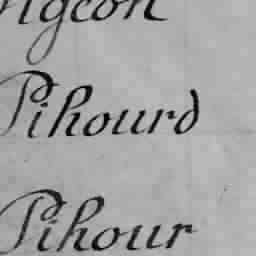 Pigeon
Pihourd
Pihour